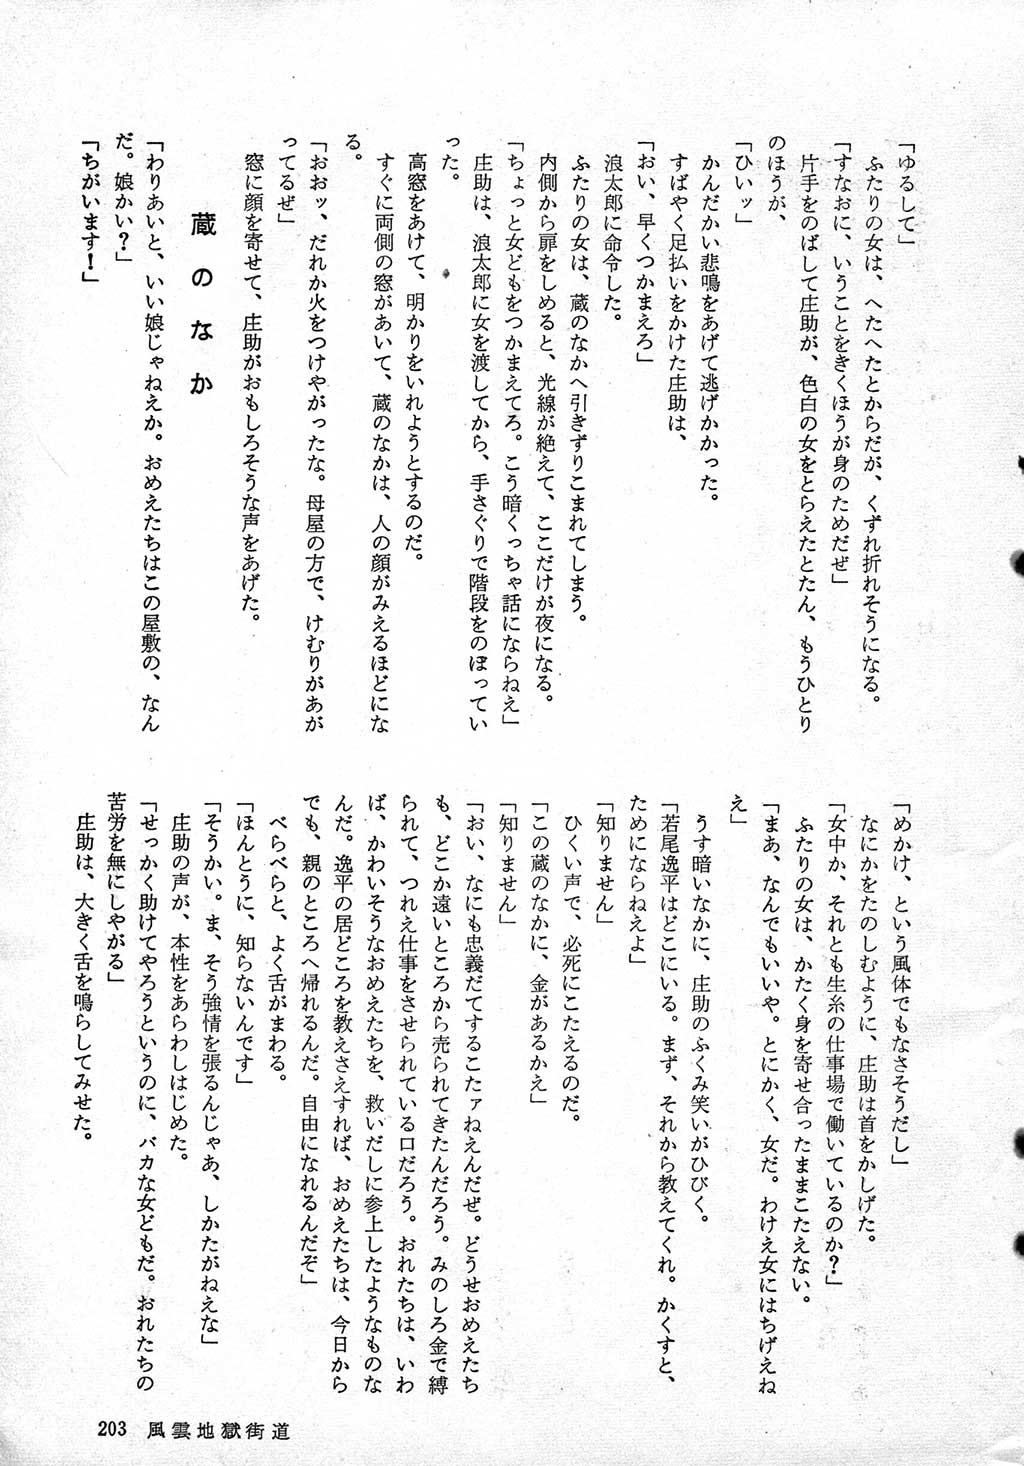 「ゆるして」
ふたりの女は、へたへたとからだが、くずれ折れそうになる。
「すなおに、いうことをきくほうが身のためだぜ」
片手をのばして庄助が、色白の女をとらえたとたん、もうひとり
のほうが、
「ひいッ」
かんだかい悲鳴をあげて逃げかかった。
すばやく足払いをかけた庄助は、
「おい、早くつかまえろ」
浪太郎に命令した。
ふたりの女は、蔵のなかへ引きずりこまれてしまう。
内側から扉をしめると、光線が絶えて、ここだけが夜になる。
「ちょっと女どもをつかまえてろ。こう暗くっちゃ話にならねえ」
庄助は、浪太郎に女を渡してから、手さぐりで階段をのぼってい
った。
高窓をあけて、明かりをいれようとするのだ。
すぐに両側の窓があいて、蔵のなかは、人の顔がみえるほどにな
る。
「おおッ、だれか火をつけやがったな。母屋の方で、けむりがあが
ってるぜ」
窓に顔を寄せて、庄助がおもしろそうな声をあげた。
蔵のなか
「わりあいと、いい娘じゃねえか。おめえたちはこの屋敷の、なん
だ。娘かい？」
「ちがいます！」
「めかけ、という風体でもなさそうだし」
なにかをたのしむように、庄助は首をかしげた。
「女中か、それとも生糸の仕事場で働いているのか？」
ふたりの女は、かたく身を寄せ合ったままこたえない。
「まあ、なんでもいいや。とにかく、女だ。わけえ女にはちげえね
え」
うす暗いなかに、庄助のふくみ笑いがひびく。
「若尾逸平はどこにいる。まず、それから教えてくれ。かくすと、
ためにならねえよ」
「知りません」
ひくい声で、必死にこたえるのだ。
「この蔵のなかに、金があるかえ」
「知りません」
「おい、なにも忠義だてするこたァねえんだぜ。どうせおめえたち
も、どこか遠いところから売られてきたんだろう。みのしろ金で縛
られて、つれえ仕事をさせられている口だろう。おれたちは、いわ
ば、かわいそうなおめえたちを、救いだしに参上したようなものな
んだ。逸平の居どころを教えさえすれば、おめえたちは、今日から
でも、親のところへ帰れるんだ。自由になれるんだぞ」
べらべらと、よく舌がまわる。
「ほんとうに、知らないんです」
「そうかい。ま、そう強情を張るんじゃあ、しかたがねえな」
庄助の声が、本性をあらわしはじめた。
「せっかく助けてやろうというのに、バカな女どもだ。おれたちの
苦労を無にしやがる」
庄助は、大きく舌を鳴らしてみせた。
203 風雲地獄街道